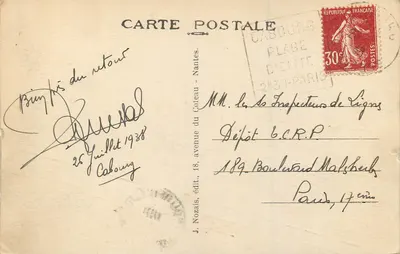 CARTE POSTALE
CABOURG
PLAGE
30c
POSTES
Bien près du retour
26 Juillet 1938
Cabourg
J. Nozais, édit., 18, avenue du Coteau - Nantes.
MM. les Inspecteurs de Lignes
Dépôt T.C.R.P
189 Boulevard Malesherbes
Paris, 17ème